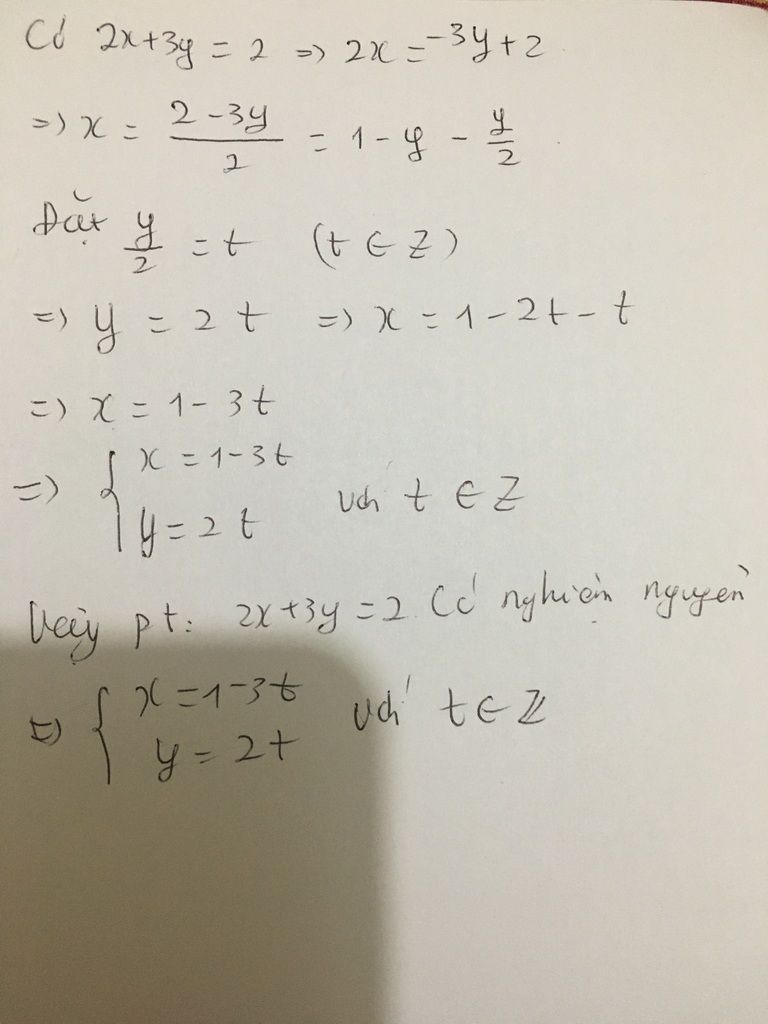 Có 2x+3y = 2 => 2x = -3y+2
=> x = \frac{2-3y}{2} = 1 - y - \frac{y}{2}
Đặt \frac{y}{2} = t (t ∈ Z)
=> y = 2t => x = 1 - 2t - t
=> x = 1 - 3t
=> { x = 1-3t
y = 2t với t ∈ Z
Vậy pt: 2x+3y = 2 Có nghiệm nguyên
=> { x = 1-3t với t ∈ Z
y = 2t